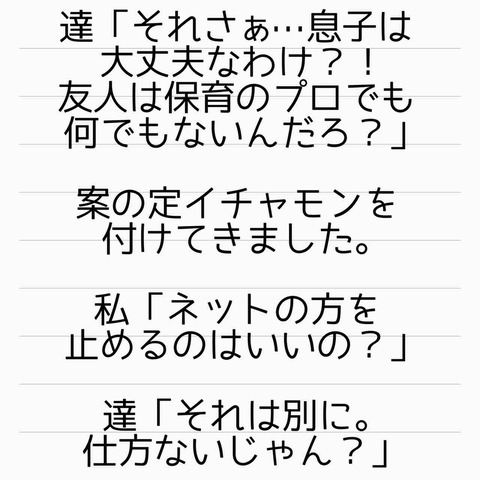 達「それさぁ…息子は
大丈夫なわけ？！
友人は保育のプロでも
何でもないんだろ？」
案の定イチャモンを
付けてきました。
私「ネットの方を
止めるのはいいの？」
達「それは別に。
仕方ないじゃん？」